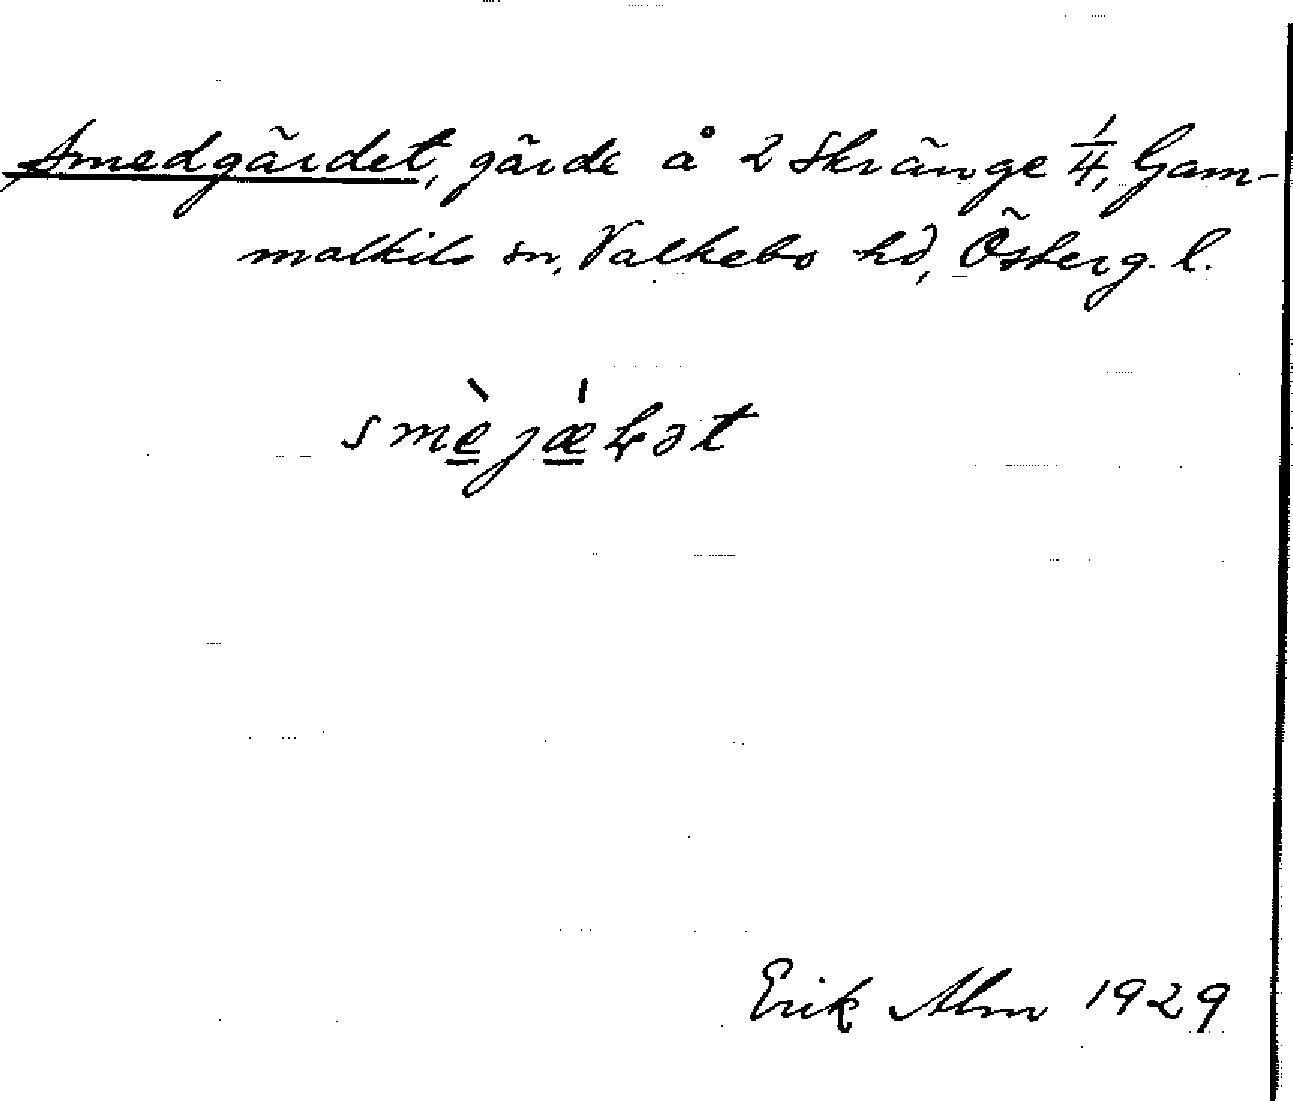 Smedgärdet, gärde å 2 Skränge 1/4, Gam-
malkils sn, Valkebo hd, Österg. l.
smèjǽɽət
Erik Alm 1929